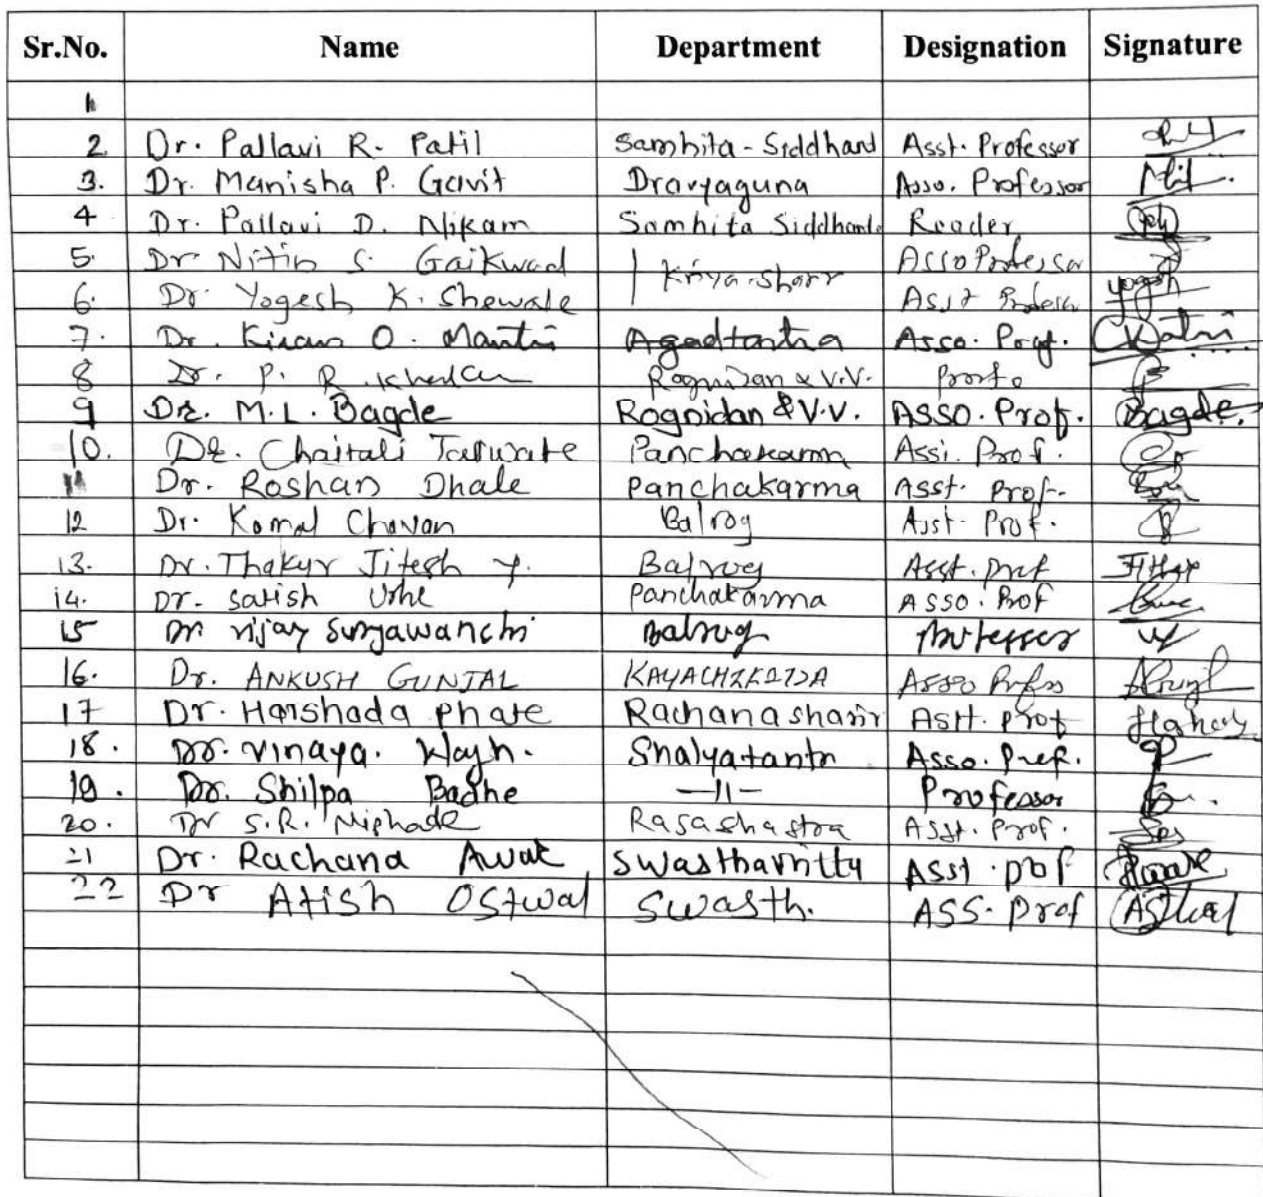 Sr.No. Name Department Designation Signature
1
2 Dr. Pallavi R. Patil Samhita - Siddhand Asst. Professor
3. Dr. Manisha P. Gavit Dravyaguna Asso. Professor
4 Dr. Pallavi D. Nikam Samhita Siddhant Reader
5. Dr Nitin S. Gaikwad Asso Professor
Kriya-Sharir
6. Dr. Yogesh K. Shewale Asst Yogesh
7. Dr. Kiran O. Mantri Agadtantra Asso. Prof.
8 Dr. P. R. Rognidan & V.V. Prof.
9 Dr. M.L. Bagde Rognidan & V.V. ASSO. Prof. Bagde
10. Dr. Chaitali Panchakarma Assi. Prof.
11 Dr. Roshan Dhale Panchakarma Asst. Prof.
12 Dr. Komal Chavan Balrog Asst. Prof.
13. Dr. Thakur Jitesh Y. Balrog Asst. Prof
14. Dr. Satish Ushe Panchakarma ASSO. Prof
15 Dr Vijay Suryawanchi Balrog Professor
16. Dr. ANKUSH GUNJAL Asso
17 Dr. Harshada Phate Rachana sharir Asst. Prof
18. Dr. Vinaya. Wagh. Shalyatantr Asso. Prof.
19. Dr. Shilpa Badhe —11— Professor
20. Dr S.R. Niphade Rasashastra Asst. Prof.
21 Dr. Rachana Awat Swasthavritta Asst. Prof
22 Dr Atish Ostwal Swasth. ASS. Prof